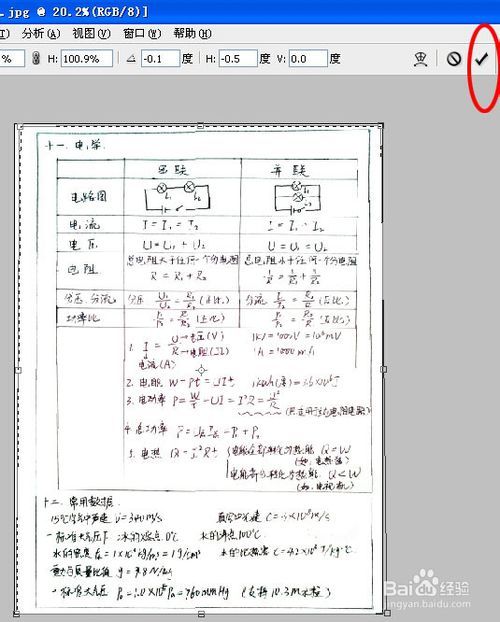 .jpg @ 20.2%(RGB/8)]
I) 分析(A) 视图(V) 窗口(W) 帮助(H)
% H: 100.9% -0.1 度 H: -0.5 度 V: 0.0 度
十一. 电学
串联 并联
电路图
L₁ L₂
电流 I=I₁=I₂
电压 U=U₁+U₂ U=U₁=U₂
电阻 总电阻大于任何一个分电阻 总电阻小于任何一个分电阻
R=R₁+R₂ 1/R=1/R₁+1/R₂
分压、分流 分压 U₁/U₂=R₁/R₂ (正比) 分流 I₁/I₂=R₂/R₁ (反比)
功率比 P₁/P₂=R₁/R₂ (正比) P₁/P₂=R₂/R₁ (反比)
1. I=U→电压(V)/R→电阻(Ω) 1KV=1000V=10⁶mV
电流(A)
2. 电能 W=Pt=UIt 1kWh(度)=3.6×10⁶J
3. 电功率 P=W/t=UI=I²R=U²/R
(只适用于纯电阻电路)
4. 总功率
5. 电热 Q=I²Rt 电能全部转化为热能 Q=W
(如: 电热器)
电能部分转化为热能 Q<W
(如: 电视机)
十二. 常用数据
15℃空气中声速 V=340m/s 真空中光速 C=3×10⁸m/s
一标准大气压下: 冰的熔点0℃ 水的沸点100℃
水的密度 =1×10³kg/m³=1g/cm³ 水的比热容 C=4.2×10³J/kg·℃
重力与质量比值 g=9.8N/kg
一标准大气压 P₀=1.0×10⁵Pa=760mmHg (支持10.3m水柱)
Baidu 经验
jingyan.baidu.com